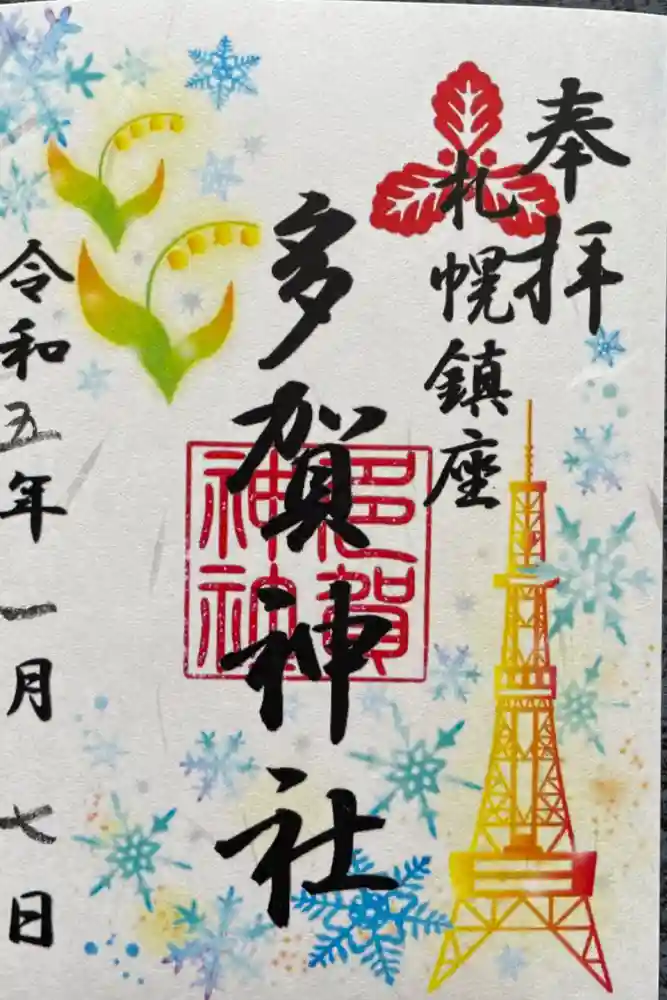 奉拝
札幌鎮座
多賀神社
多賀
神社
令和五年一月七日